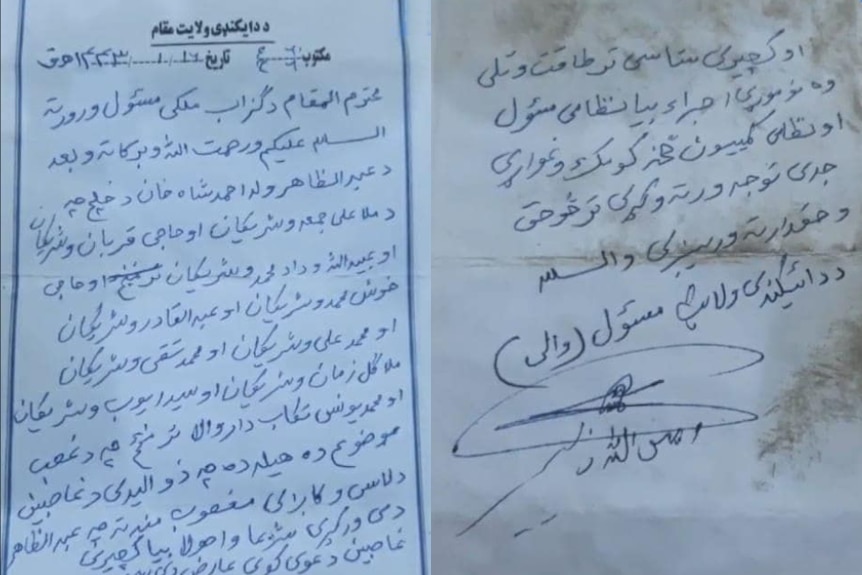 د دایکندی ولایت مقام
مکتوب تاریخ ۱۶/۱۰/۱۴۴۳ هـ ق
محترم المقام د گزاب ملکي مسئول ورورته
السلام علیکم ورحمت الله وبرکاته وبعد
د عبدالظاهر ولد احمد شاه خان د خلج چه
د ملا علی جمعه وشریکان او حاجی قربان وشریکان
او عبیدالله و داد محمد وشریکان او حاجی
خوش محمد وشریکان او عبدالقادر وشریکان
او محمد علی وشریکان او محمد تقی وشریکان
ملا گل زمان وشریکان او سید ایوب وشریکان
او محمد یونس تکاب دار والا تر منځ چه د غصب
موضوع ده هیله ده چه ذوالیدی د غاصبین
د لاس و کاږلی مغصوب منه ته چه عبدالظاهر
دی ورکړی شرعا و اصولا بیا کچیری
غاصبین دعوی کوی عارض دی
او کچیری ستاسی تر طاقت وتلی
وه نوموړی اجراء بیا نظامی مسئول
او نظامی کمیسون څخه کومک وغواړی
جدی توجه ورته وکړی تر څو حق
و حقدار ته ورسیږی والسلام
د دائیکندی ولایت مسئول (والی)
امین الله